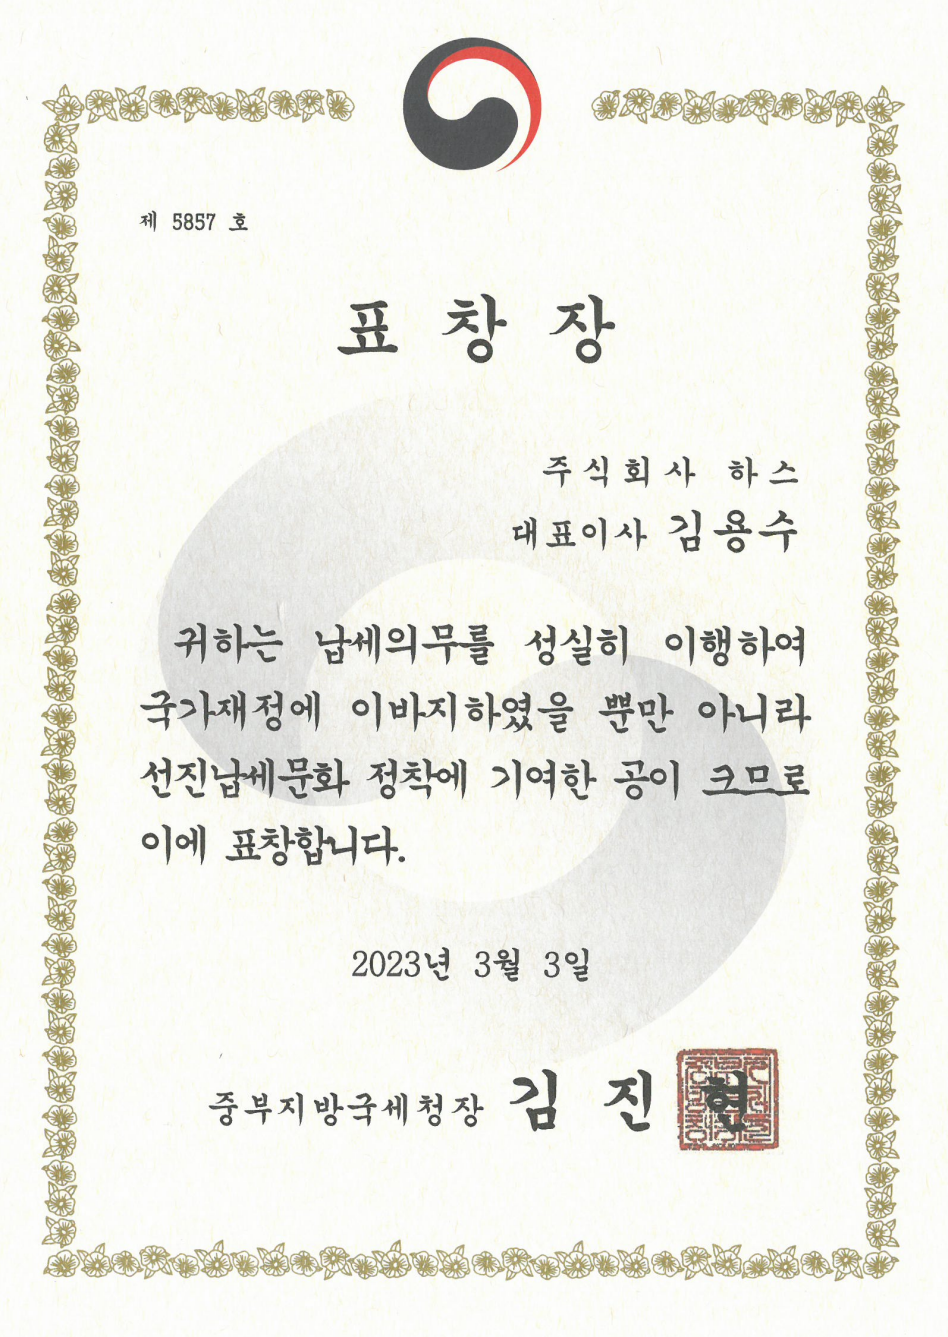 제 5857 호
표 창 장
주식회사 하스
대표이사 김용수
귀하는 납세의무를 성실히 이행하여
국가재정에 이바지하였을 뿐만 아니라
선진납세문화 정착에 기여한 공이 크므로
이에 표창합니다.
2023년 3월 3일
중부지방국세청장 김 진 현